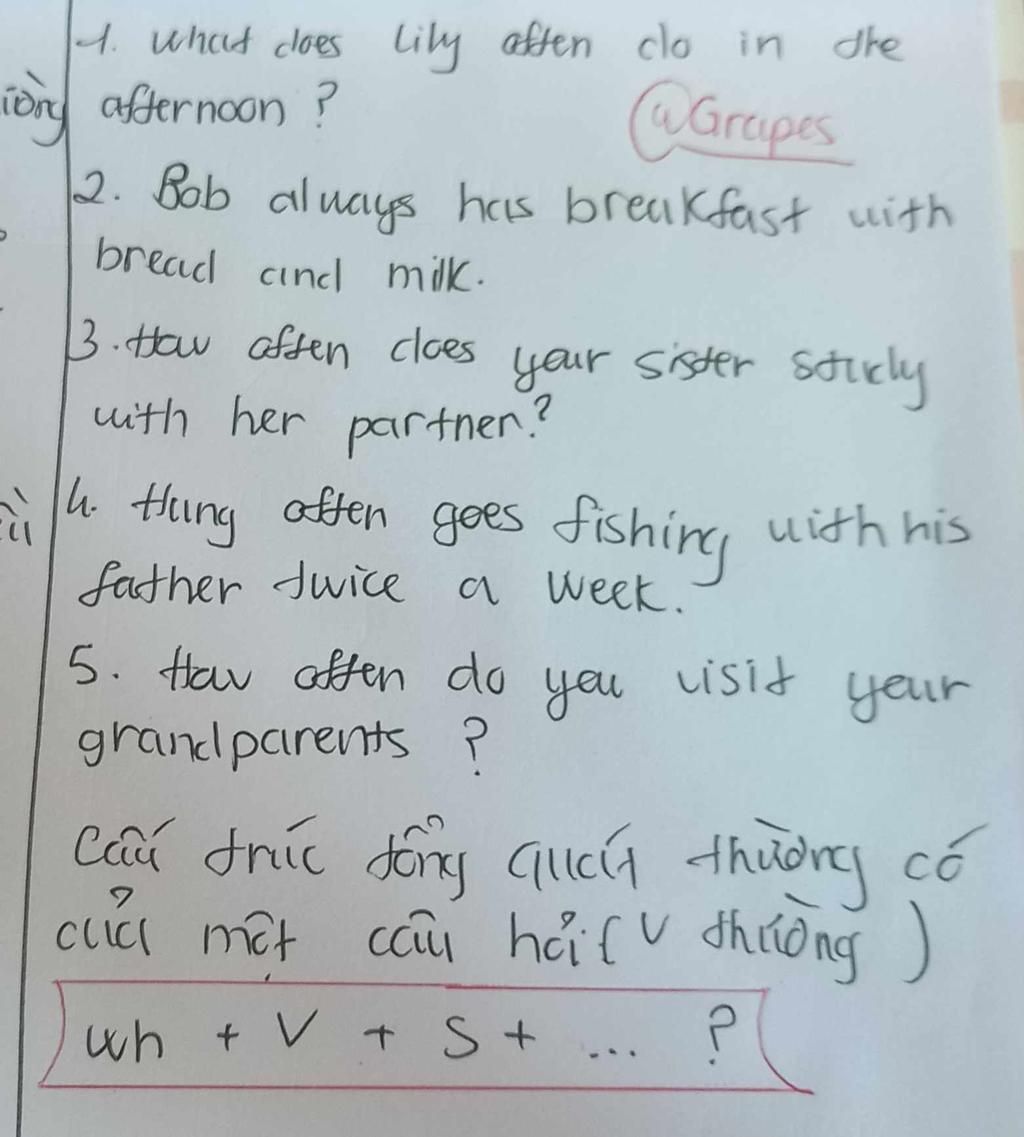 1. What does Lily often do in the
afternoon ?
@Grapes
2. Bob always has breakfast with
bread and milk.
3. How often does your sister study
with her partner?
4. Hung often goes fishing with his
father twice a week.
5. How often do you visit your
grandparents ?
Cấu trúc tổng quát thường có
của một câu hỏi ( V thường )
Wh + V + S + ... ?